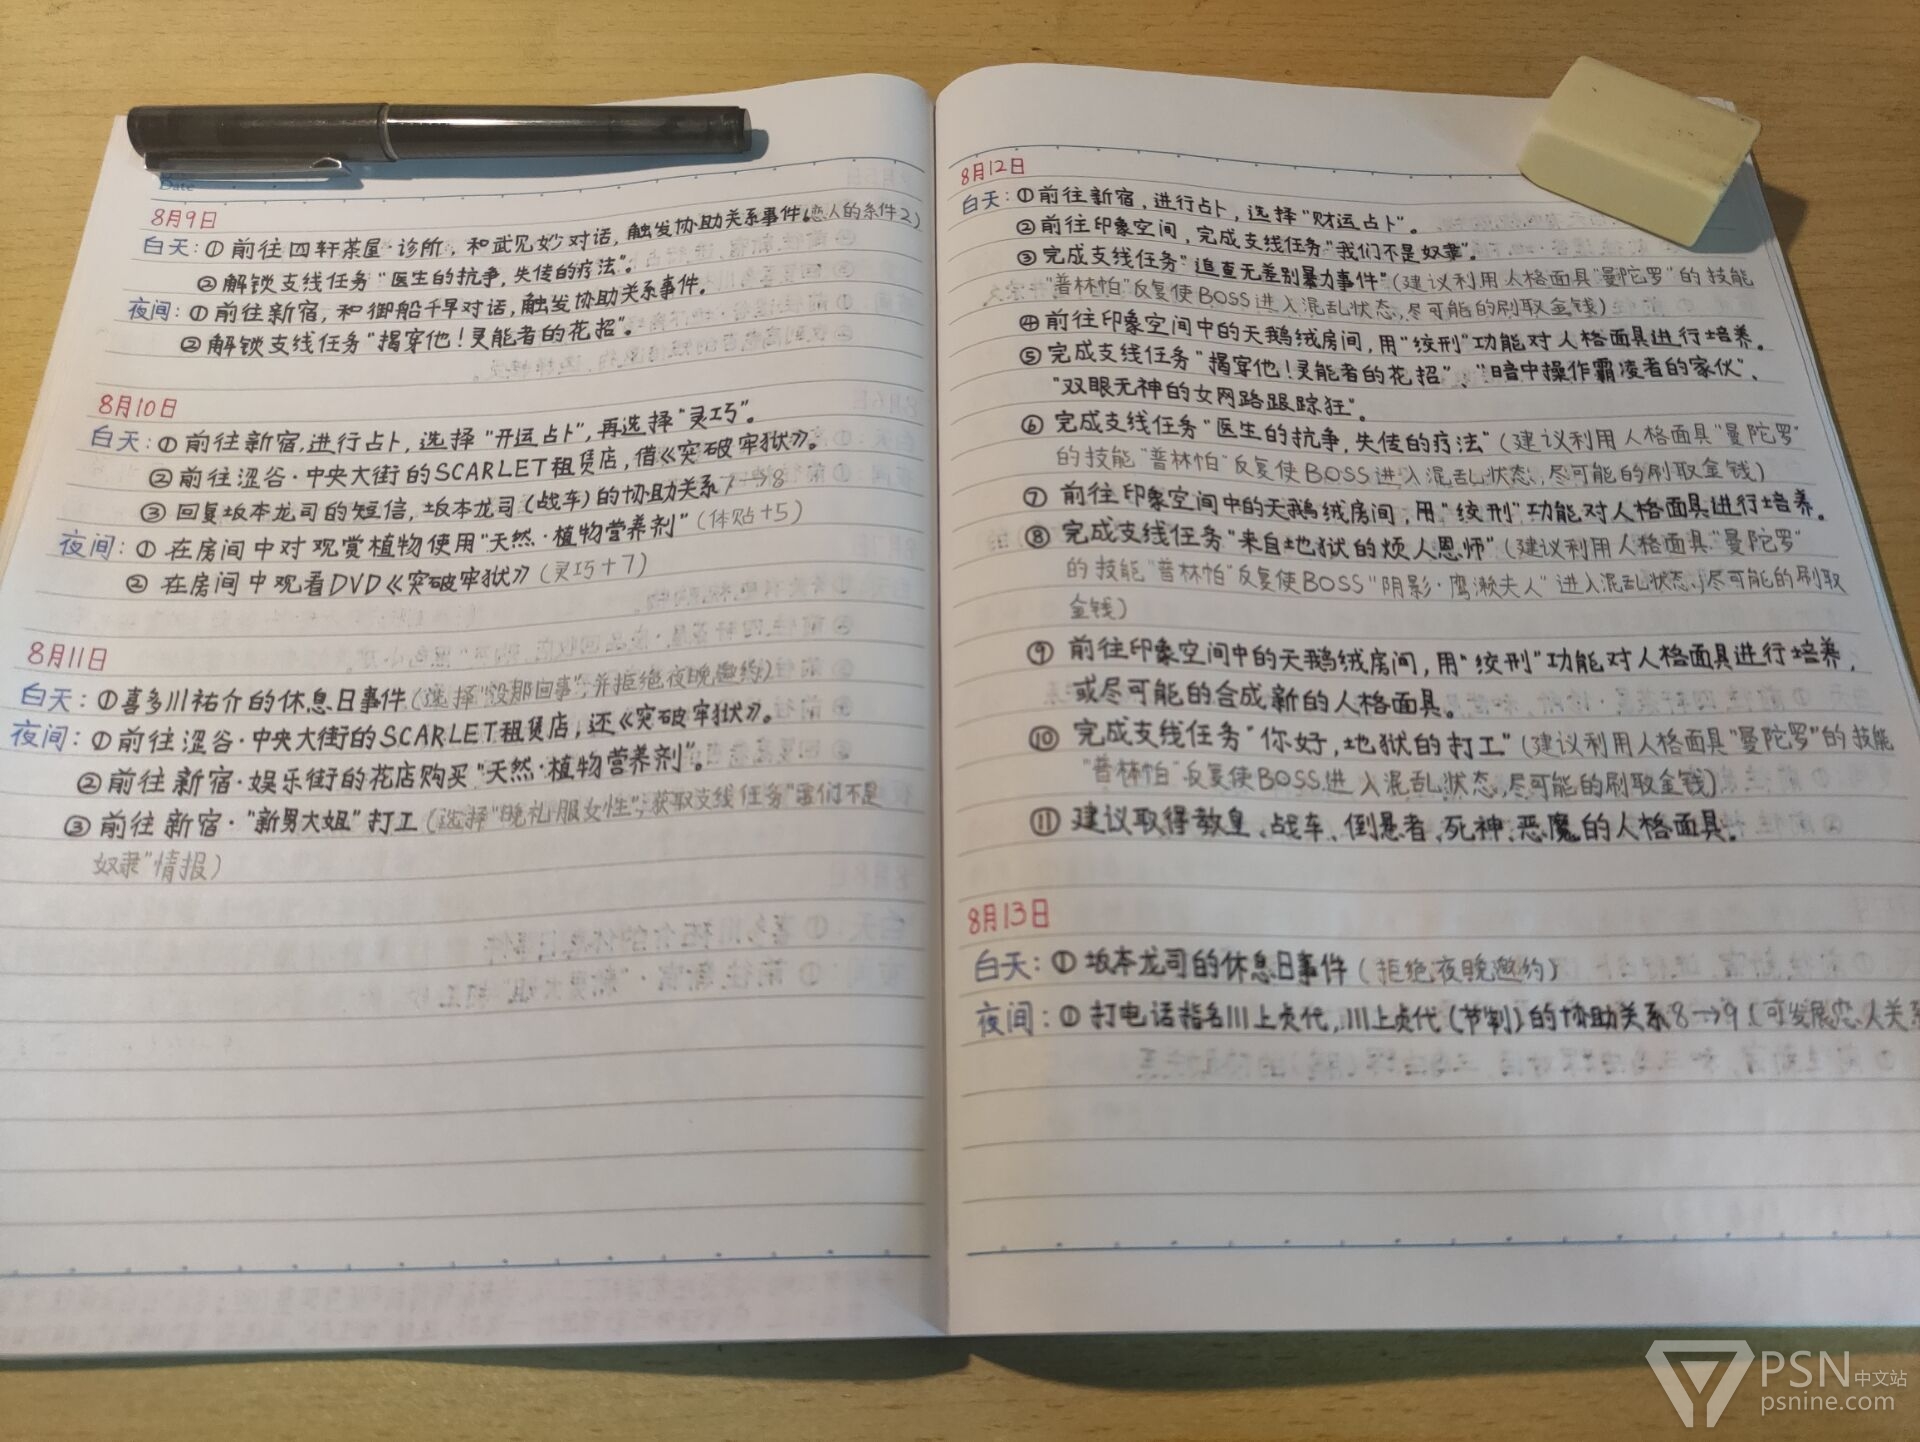 Date
8月9日
白天：①前往四轩茶屋·诊所，和武见妙对话，触发协助关系事件。(恋人的条件2)
②解锁支线任务“医生的抗争，失传的疗法”。
夜间：①前往新宿，和御船千早对话，触发协助关系事件。
②解锁支线任务“揭穿他！灵能者的花招”。
8月10日
白天：①前往新宿，进行占卜，选择“开运占卜”，再选择“灵巧”。
②前往涩谷·中央大街的SCARLET租赁店，借《突破牢狱》。
③回复坂本龙司的短信，坂本龙司(战车)的协助关系7→8
夜间：①在房间中对观赏植物使用“天然·植物营养剂”(体贴+5)
②在房间中观看DVD《突破牢狱》(灵巧+7)
8月11日
白天：①喜多川祐介的休息日事件(选择“没那回事”，并拒绝夜晚邀约)
夜间：①前往涩谷·中央大街的SCARLET租赁店，还《突破牢狱》。
②前往新宿·娱乐街的花店购买“天然·植物营养剂”。
③前往新宿·“新男大姐”打工(选择“晚礼服女性”，获取支线任务“我们不是
奴隶”情报)
8月12日
白天：①前往新宿，进行占卜，选择“财运占卜”。
②前往印象空间，完成支线任务“我们不是奴隶”。
③完成支线任务“追查无差别暴力事件”(建议利用人格面具“曼陀罗”的技能
“普林怕”反复使BOSS进入混乱状态，尽可能的刷取金钱)
④前往印象空间中的天鹅绒房间，用“绞刑”功能对人格面具进行培养。
⑤完成支线任务“揭穿他！灵能者的花招”、“暗中操作霸凌者的家伙”、
“双眼无神的女网路跟踪狂”。
⑥完成支线任务“医生的抗争，失传的疗法”(建议利用人格面具“曼陀罗”
的技能“普林怕”反复使BOSS进入混乱状态，尽可能的刷取金钱)
⑦前往印象空间中的天鹅绒房间，用“绞刑”功能对人格面具进行培养。
⑧完成支线任务“来自地狱的烦人恩师”(建议利用人格面具“曼陀罗”
的技能“普林怕”反复使BOSS“阴影·鹰濑夫人”进入混乱状态，尽可能的刷取
金钱)
⑨前往印象空间中的天鹅绒房间，用“绞刑”功能对人格面具进行培养，
或尽可能的合成新的人格面具。
⑩完成支线任务“你好，地狱的打工”(建议利用人格面具“曼陀罗”的技能
“普林怕”反复使BOSS进入混乱状态，尽可能的刷取金钱)
⑪建议取得教皇、战车、倒悬者、死神、恶魔的人格面具。
8月13日
白天：①坂本龙司的休息日事件(拒绝夜晚邀约)
夜间：①打电话指名川上贞代，川上贞代(节制)的协助关系8→9(可发展恋人关系
PSN中文站
psnine.com